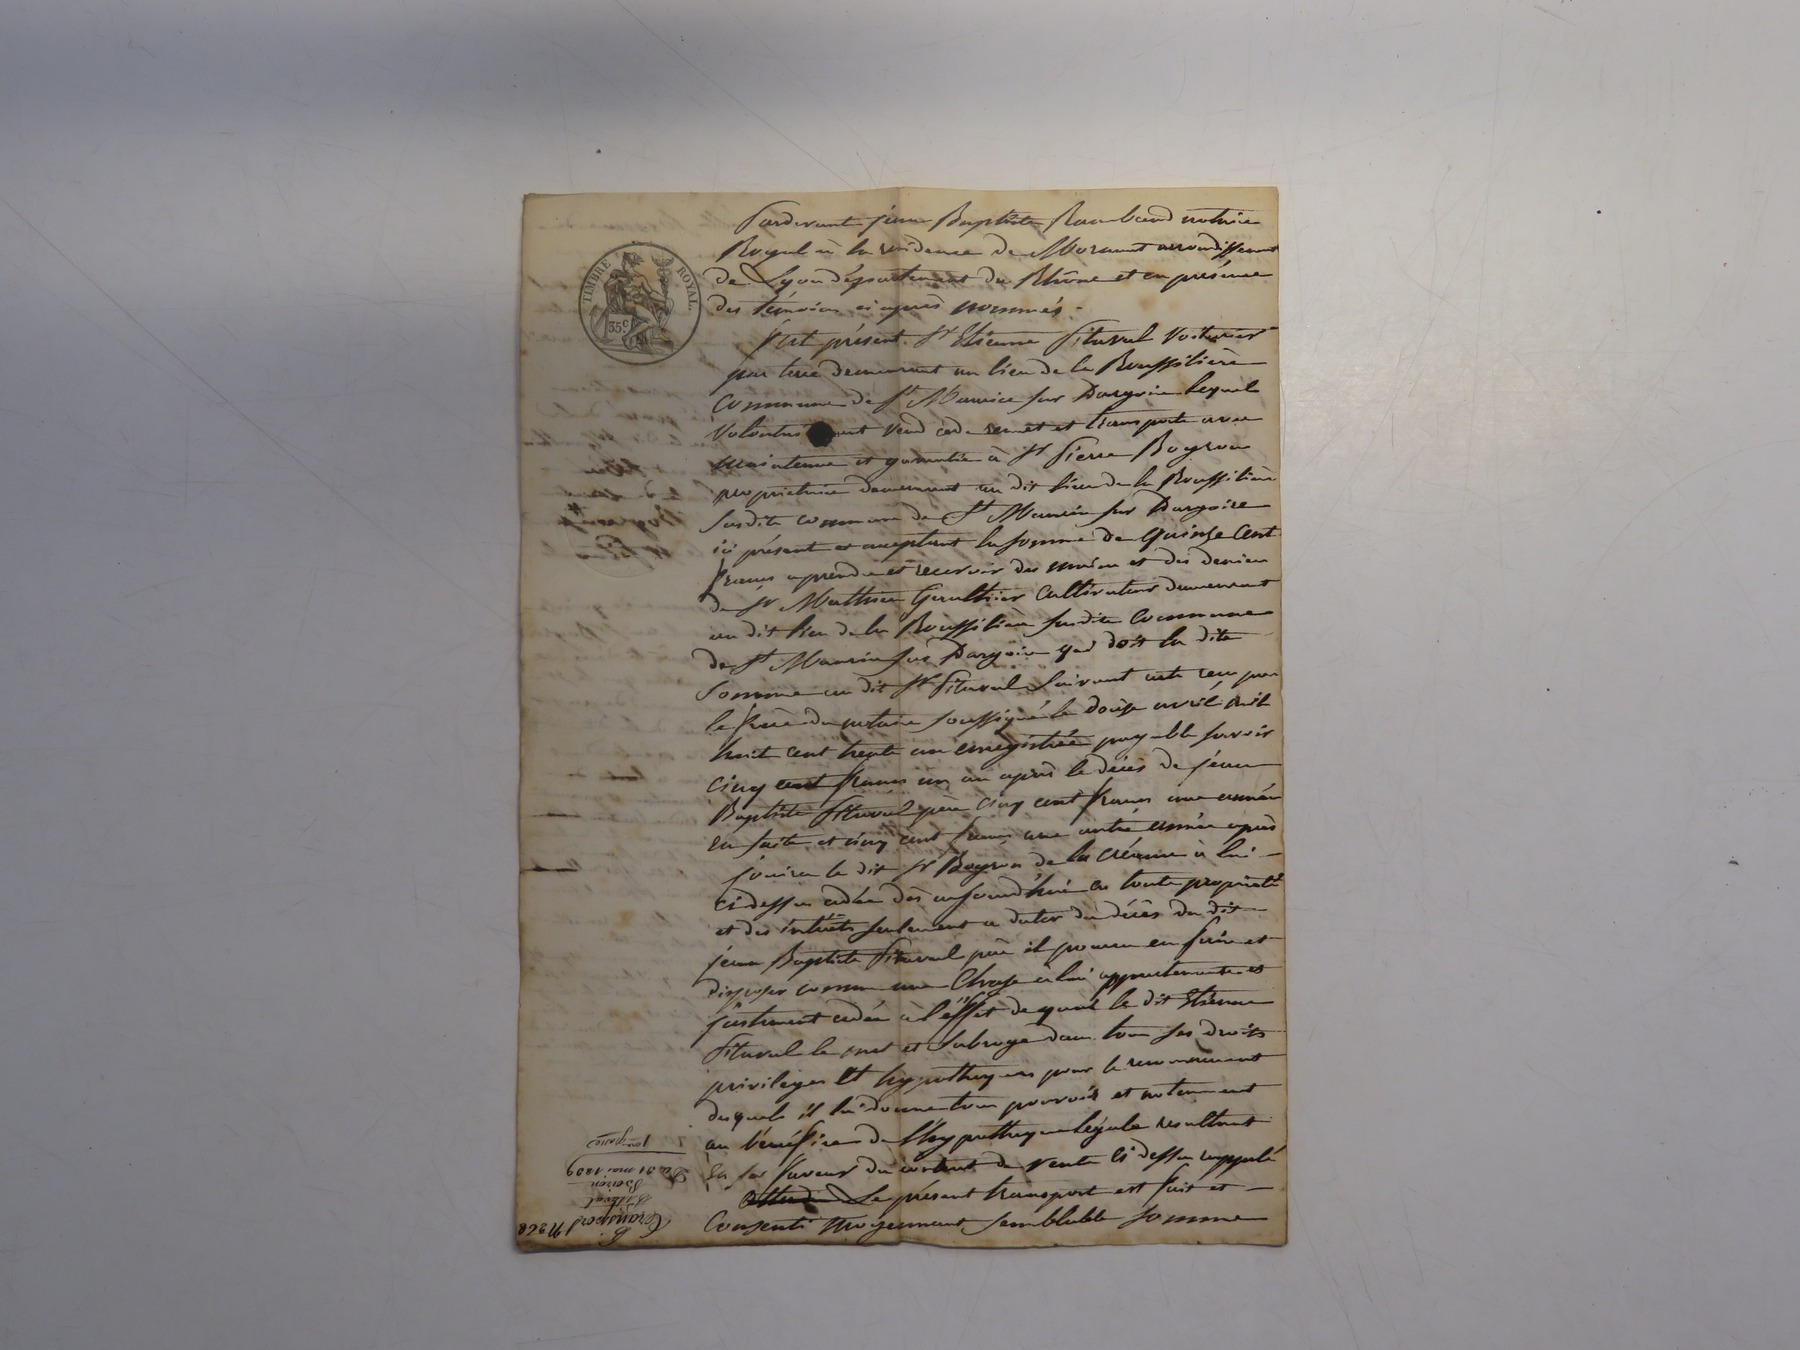 TIMBRE ROYAL
35c
Pardevant jean Baptiste Rambaud notaire
Royal à la residence de Mornant arrondissement
de Lyon département du Rhône et en présence
des témoins ci après nommés.
Fut présent Sr Etienne Pitaval Voiturier
par terre demeurant au lieu de la Roussilière
Commune de St Maurice sur Dargoire lequel
Volontairement Vend cede remet et transporte avec
maintenue et garantie à Sr Pierre Boyron
propriétaire demeurant au dit lieu de la Roussilière
susdite commune de St Maurice sur Dargoire
ici présent et acceptant la somme de Quinze Cent
francs a prendre et recevoir des mains et des deniers
de Sr Mathieu Gaulthier Cultivateur demeurant
au dit lieu de la Roussilière susdite Commune
de St Maurice sur Dargoire qui doit la dite
Somme au dit Sr Pitaval Suivant acte reçu par
le frère du notaire soussigné le douze avril mil
huit cent trente un enregistrée payable savoir
cinq cent francs un an après le décès de jean
Baptiste Pitaval père cinq cent francs une année
en suite et cinq cent francs une autre année après
jouira le dit Sr Boyron de la créance à lui
cidessus cédée dès aujourd'hui en toute propriété
et des intérêts seulement a dater du décès du dit
jean Baptiste Pitaval père il pourra en faire et
disposer comme une Chose à lui appartenante et
justement cédée à l'effet de quoi le dit Etienne
Pitaval le met et Subroge dans tous ses droits
privilèges Et hypothèques pour le recouvrement
desquels il lui donne tous pouvoirs et notamment
au bénéfice de l'hypothèque légale resultant
En sa faveur du contrat de vente ci dessus rappelé
Le présent transport est fait et
Consenti moyennant semblable somme
N 368
Transport
Pitaval
Boiron
Du 31 mai 1839